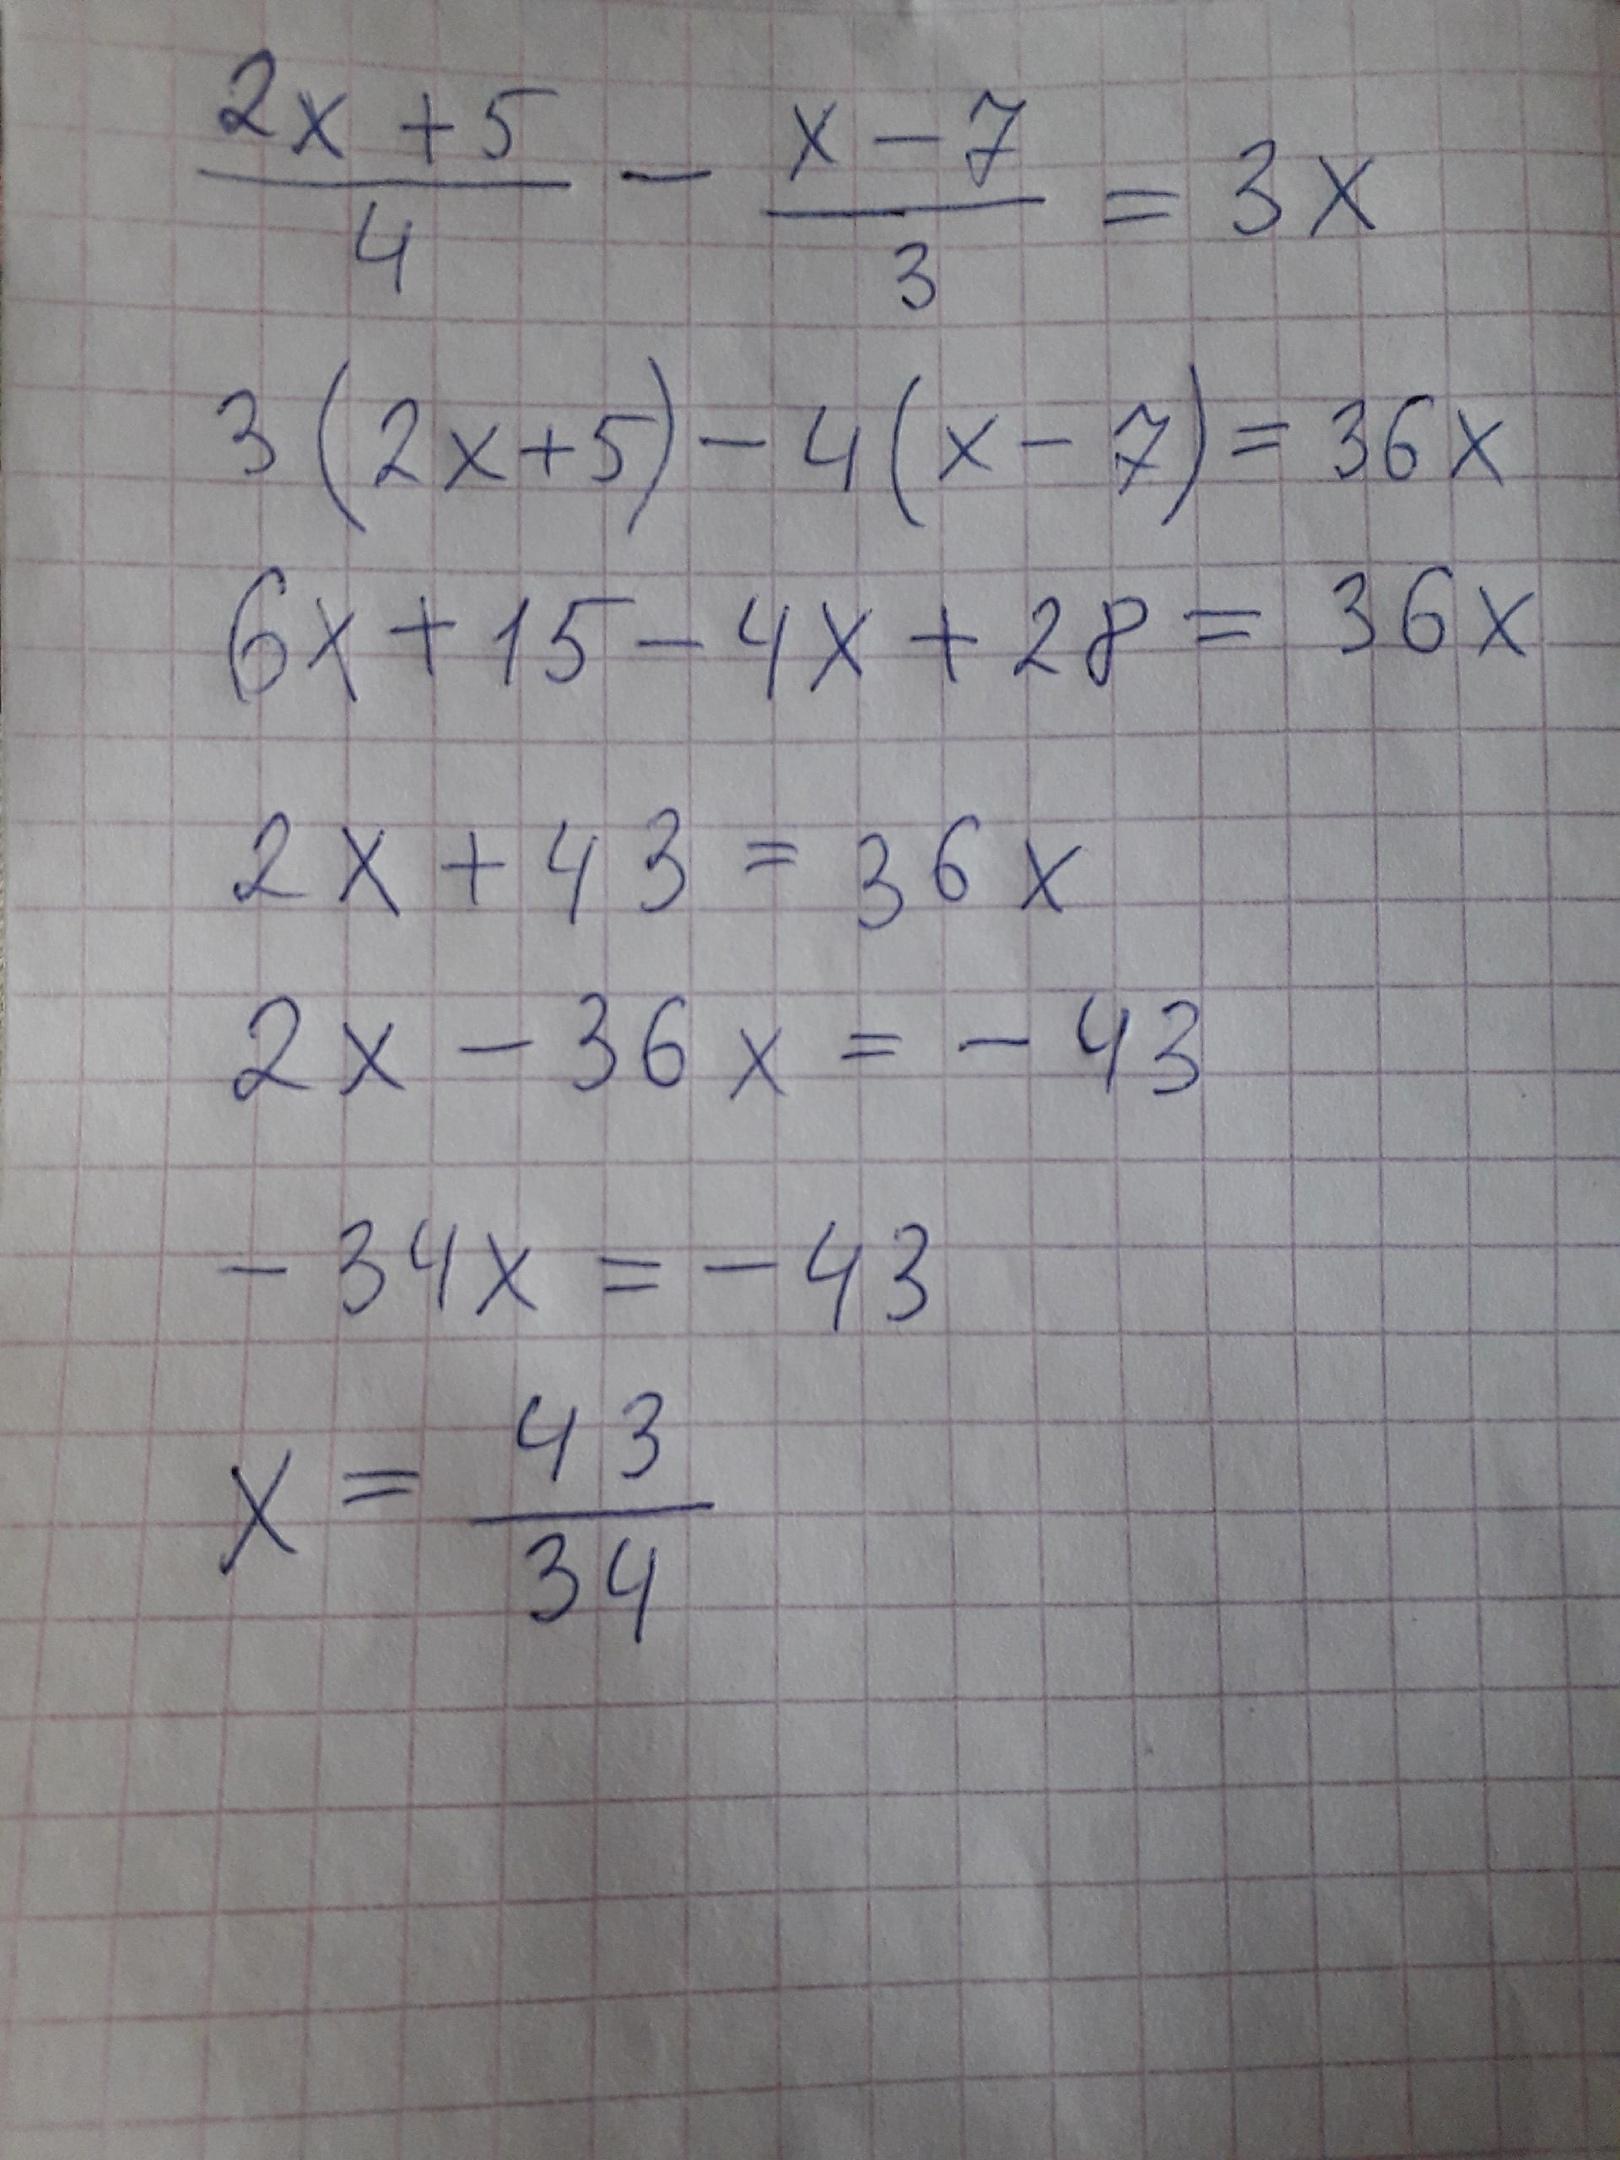 (2x+5)/4 - (x-7)/3 = 3x
3(2x+5)-4(x-7)=36x
6x+15-4x+28=36x
2x+43=36x
2x-36x=-43
-34x=-43
x=43/34